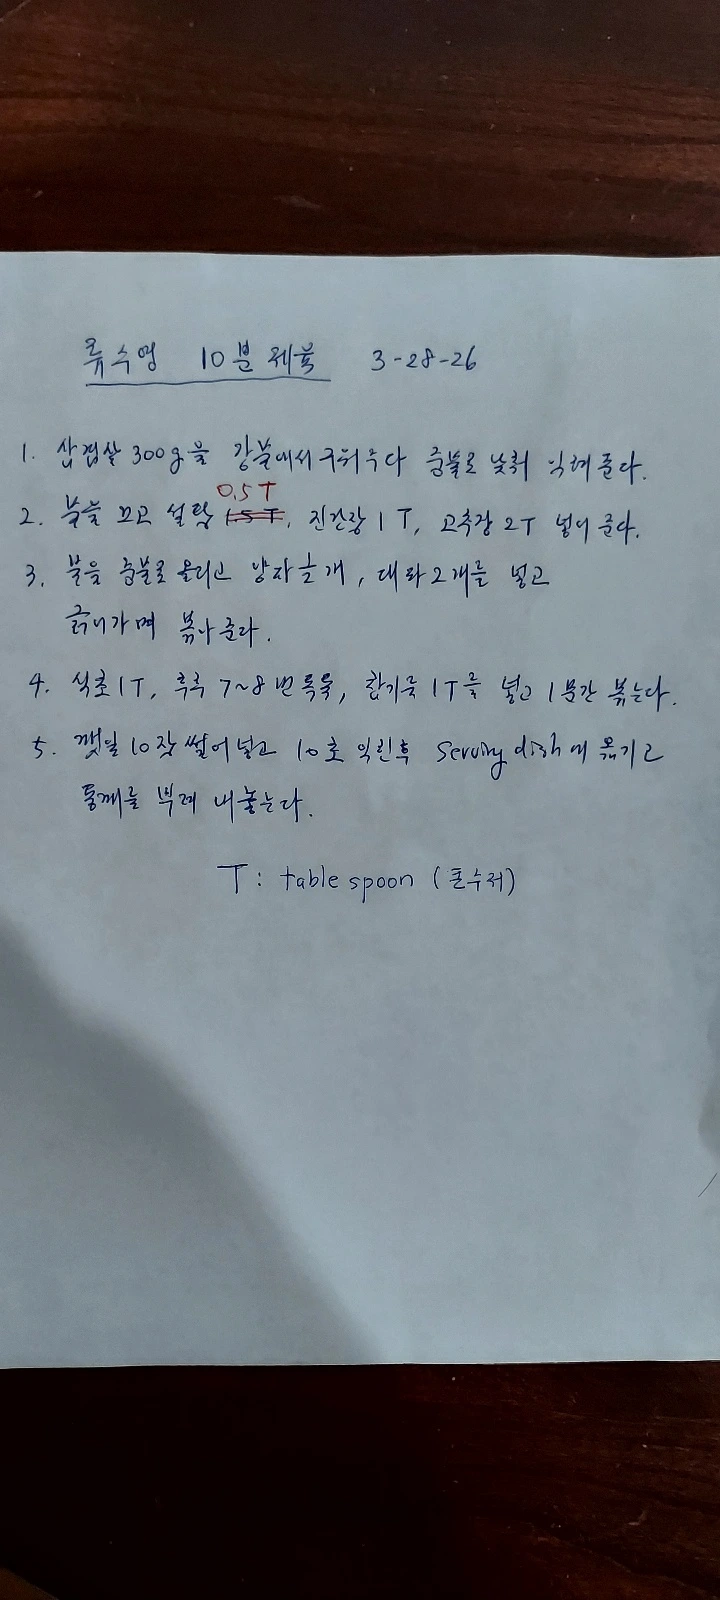 류수영 10분 제육 3-28-26
1. 삼겹살 300g을 강불에서 구워주다 중불로 낮춰 익혀준다.
0.5T
2. 불을 끄고 설탕 1.5T, 진간장 1T, 고추장 2T 넣어 준다.
3. 불을 중불로 올리고 양파 1/2개, 대파 2개를 넣고
긁어가며 볶아 준다.
4. 식초 1T, 후추 7~8번 톡톡, 참기름 1T를 넣고 1분간 볶는다.
5. 깻잎 10장 썰어 넣고 10초 익힌후 Serving dish에 옮기고
통깨를 뿌려 내놓는다.
T: table spoon (큰수저)